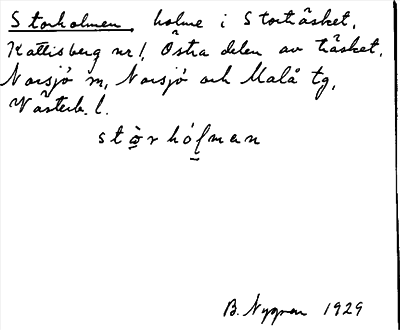 Storholmen, holme i Storträsket,
Kattisberg nr 1, Östra delen av träsket,
Norsjö sn, Norsjö och Malå tg,
Västerb. l.
stòrhólman
B. Nygren 1929